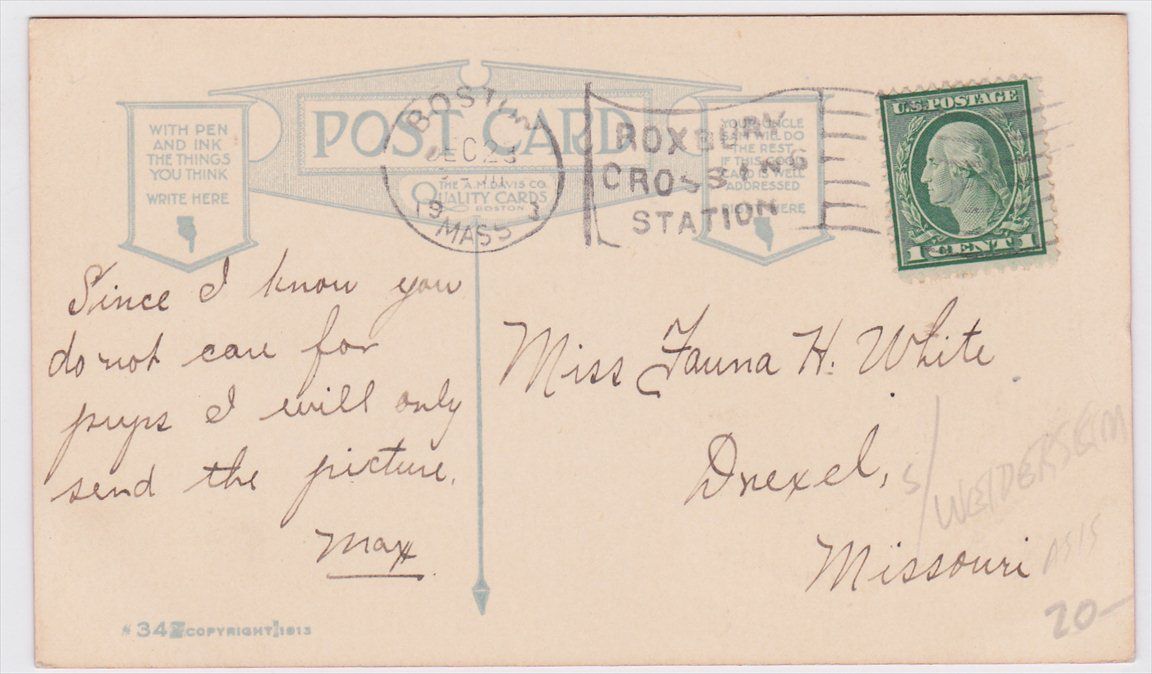 POST CARD
WITH PEN
AND INK
THE THINGS
YOU THINK
WRITE HERE
THE A.M. DAVIS CO.
QUALITY CARDS
BOSTON
BOSTON
DEC 23
19 3
MASS
ROXBURY
CROSSING
STATION
YOUR UNCLE
SAM WILL DO
THE REST
IF THIS GOOD
CARD IS WELL
ADDRESSED
RIGHT HERE
U.S. POSTAGE
1 CENT 1
Since I know you
do not care for
pups I will only
send the picture.
Max
Miss Fauna H. White
Drexel,
Missouri
S/ WEIDERSEIM
ASIS
20-
#342 COPYRIGHT 1913